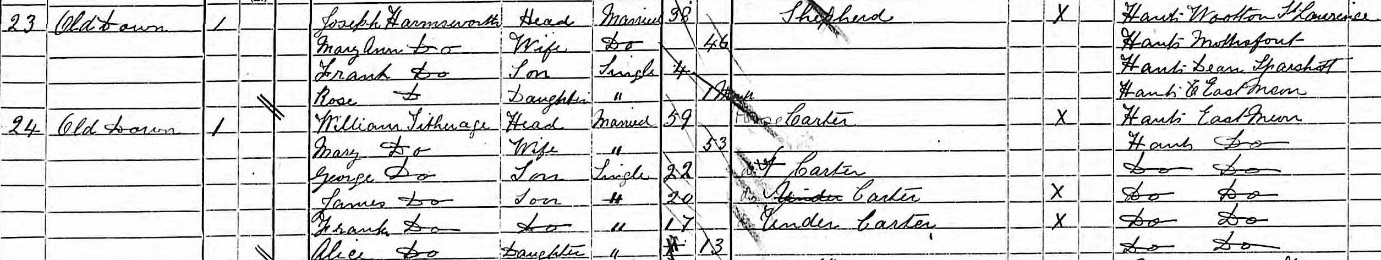 23 Old Down 1 Joseph Harmsworth Head Married 38 Shepherd X Hants Wootton St Lawrence
Mary Ann Do Wife Do 46 Hants Mottisfont
Frank Do Son Single 4 Hants Dean Sparsholt
Rose D Daughter " 1 Hants E East Meon
24 Old Down 1 William Titherage Head Married 59 Carter X Hants East Meon
Mary Do Wife " 53 Hants Do
George Do Son Single 22 Carter Do Do
James Do Son " 20 Under Carter X Do Do
Frank Do Do " 17 Under Carter X Do Do
Alice Do Daughter " 13 Do Do